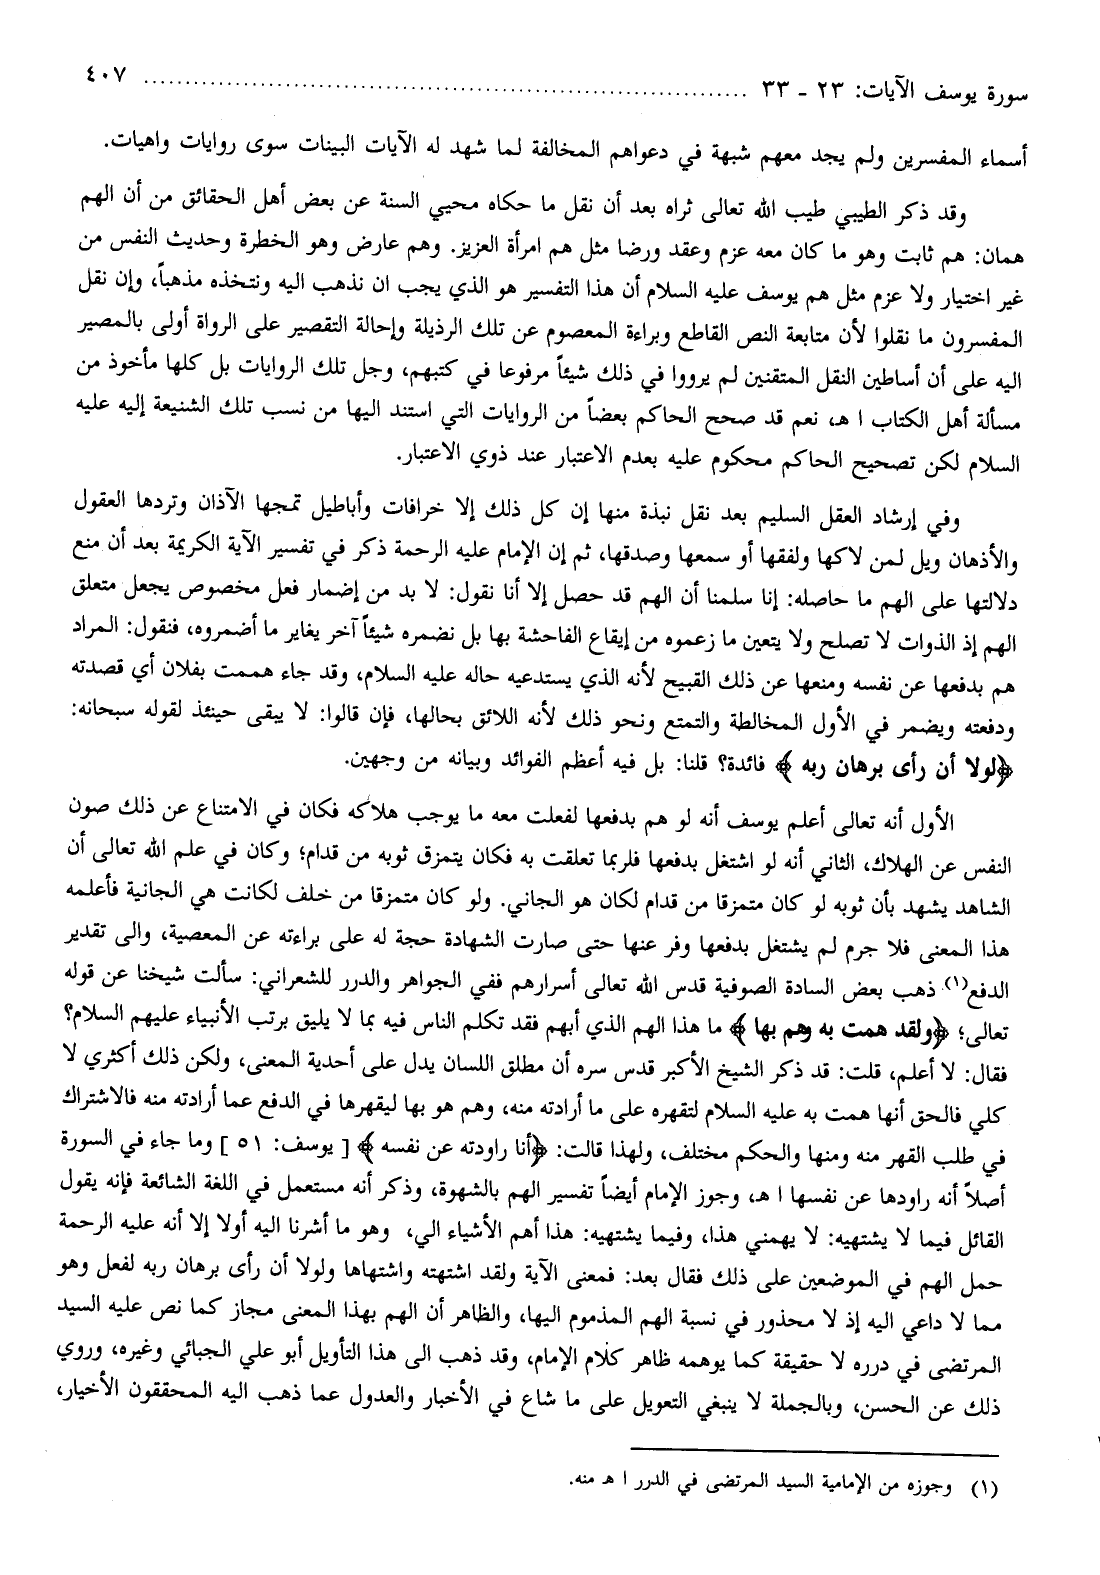 سورة يوسف الآيات: ٢٣ ـ ٣٣ ........................................ ٤٠٧
أسماء المفسرين ولم يجد معهم شبهة في دعواهم المخالفة لما شهد له الآيات البينات سوى روايات واهيات.
وقد ذكر الطيبي طيب الله تعالى ثراه بعد أن نقل ما حكاه محيي السنة عن بعض أهل الحقائق من أن الهم
همان: هم ثابت وهو ما كان معه عزم وعقد ورضا مثل هم امرأة العزيز. وهم عارض وهو الخطرة وحديث النفس من
غير اختيار ولا عزم مثل هم يوسف عليه السلام أن هذا التفسير هو الذي يجب ان نذهب اليه ونتخذه مذهباً، وإن نقل
المفسرون ما نقلوا لأن متابعة النص القاطع وبراءة المعصوم عن تلك الرذيلة وإحالة التقصير على الرواة أولى بالمصير
اليه على أن أساطين النقل المتقنين لم يرووا في ذلك شيئاً مرفوعا في كتبهم، وجل تلك الروايات بل كلها مأخوذ من
مسألة أهل الكتاب ا هـ، نعم قد صحح الحاكم بعضاً من الروايات التي استند اليها من نسب تلك الشنيعة إليه عليه
السلام لكن تصحيح الحاكم محكوم عليه بعدم الاعتبار عند ذوي الاعتبار.
وفي إرشاد العقل السليم بعد نقل نبذة منها إن كل ذلك إلا خرافات وأباطيل تمجها الآذان وتردها العقول
والأذهان ويل لمن لاكها ولفقها أو سمعها وصدقها، ثم إن الإمام عليه الرحمة ذكر في تفسير الآية الكريمة بعد أن منع
دلالتها على الهم ما حاصله: إنا سلمنا أن الهم قد حصل إلا أنا نقول: لا بد من إضمار فعل مخصوص يجعل متعلق
الهم إذ الذوات لا تصلح ولا يتعين ما زعموه من إيقاع الفاحشة بها بل نضمره شيئاً آخر يغاير ما أضمروه، فنقول: المراد
هم بدفعها عن نفسه ومنعها عن ذلك القبيح لأنه الذي يستدعيه حاله عليه السلام، وقد جاء هممت بفلان أي قصدته
ودفعته ويضمر في الأول المخالطة والتمتع ونحو ذلك لأنه اللائق بحالها، فإن قالوا: لا يبقى حينئذ لقوله سبحانه:
﴿لولا أن رأى برهان ربه﴾ فائدة؟ قلنا: بل فيه أعظم الفوائد وبيانه من وجهين.
الأول أنه تعالى أعلم يوسف أنه لو هم بدفعها لفعلت معه ما يوجب هلاكه فكان في الامتناع عن ذلك صون
النفس عن الهلاك، الثاني أنه لو اشتغل بدفعها فلربما تعلقت به فكان يتمزق ثوبه من قدام؛ وكان في علم الله تعالى أن
الشاهد يشهد بأن ثوبه لو كان متمزقا من قدام لكان هو الجاني. ولو كان متمزقا من خلف لكانت هي الجانية فأعلمه
هذا المعنى فلا جرم لم يشتغل بدفعها وفر عنها حتى صارت الشهادة حجة له على براءته عن المعصية، والى تقدير
الدفع(١) ذهب بعض السادة الصوفية قدس الله تعالى أسرارهم ففي الجواهر والدرر للشعراني: سألت شيخنا عن قوله
تعالى؛ ﴿ولقد همت به وهم بها﴾ ما هذا الهم الذي أبهم فقد تكلم الناس فيه بما لا يليق برتب الأنبياء عليهم السلام؟
فقال: لا أعلم، قلت: قد ذكر الشيخ الأكبر قدس سره أن مطلق اللسان يدل على أحدية المعنى، ولكن ذلك أكثري لا
كلي فالحق أنها همت به عليه السلام لتقهره على ما أرادته منه، وهم هو بها ليقهرها في الدفع عما أرادته منه فالاشتراك
في طلب القهر منه ومنها والحكم مختلف، ولهذا قالت: ﴿أنا راودته عن نفسه﴾ [ يوسف: ٥١ ] وما جاء في السورة
أصلاً أنه راودها عن نفسها ا هـ، وجوز الإمام أيضاً تفسير الهم بالشهوة، وذكر أنه مستعمل في اللغة الشائعة فإنه يقول
القائل فيما لا يشتهيه: لا يهمني هذا، وفيما يشتهيه: هذا أهم الأشياء الي، وهو ما أشرنا اليه أولا إلا أنه عليه الرحمة
حمل الهم في الموضعين على ذلك فقال بعد: فمعنى الآية ولقد اشتهته واشتهاها ولولا أن رأى برهان ربه لفعل وهو
مما لا داعي اليه إذ لا محذور في نسبة الهم المذموم اليها، والظاهر أن الهم بهذا المعنى مجاز كما نص عليه السيد
المرتضى في درره لا حقيقة كما يوهمه ظاهر كلام الإمام، وقد ذهب الى هذا التأويل أبو علي الجبائي وغيره، وروي
ذلك عن الحسن، وبالجملة لا ينبغي التعويل على ما شاع في الأخبار والعدول عما ذهب اليه المحققون الأخيار،
(١) وجوزه من الإمامية السيد المرتضى في الدرر ا هـ منه.